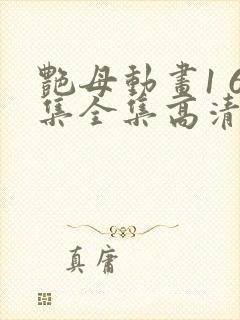 艷母動畫1 6
集全集高清
真庸